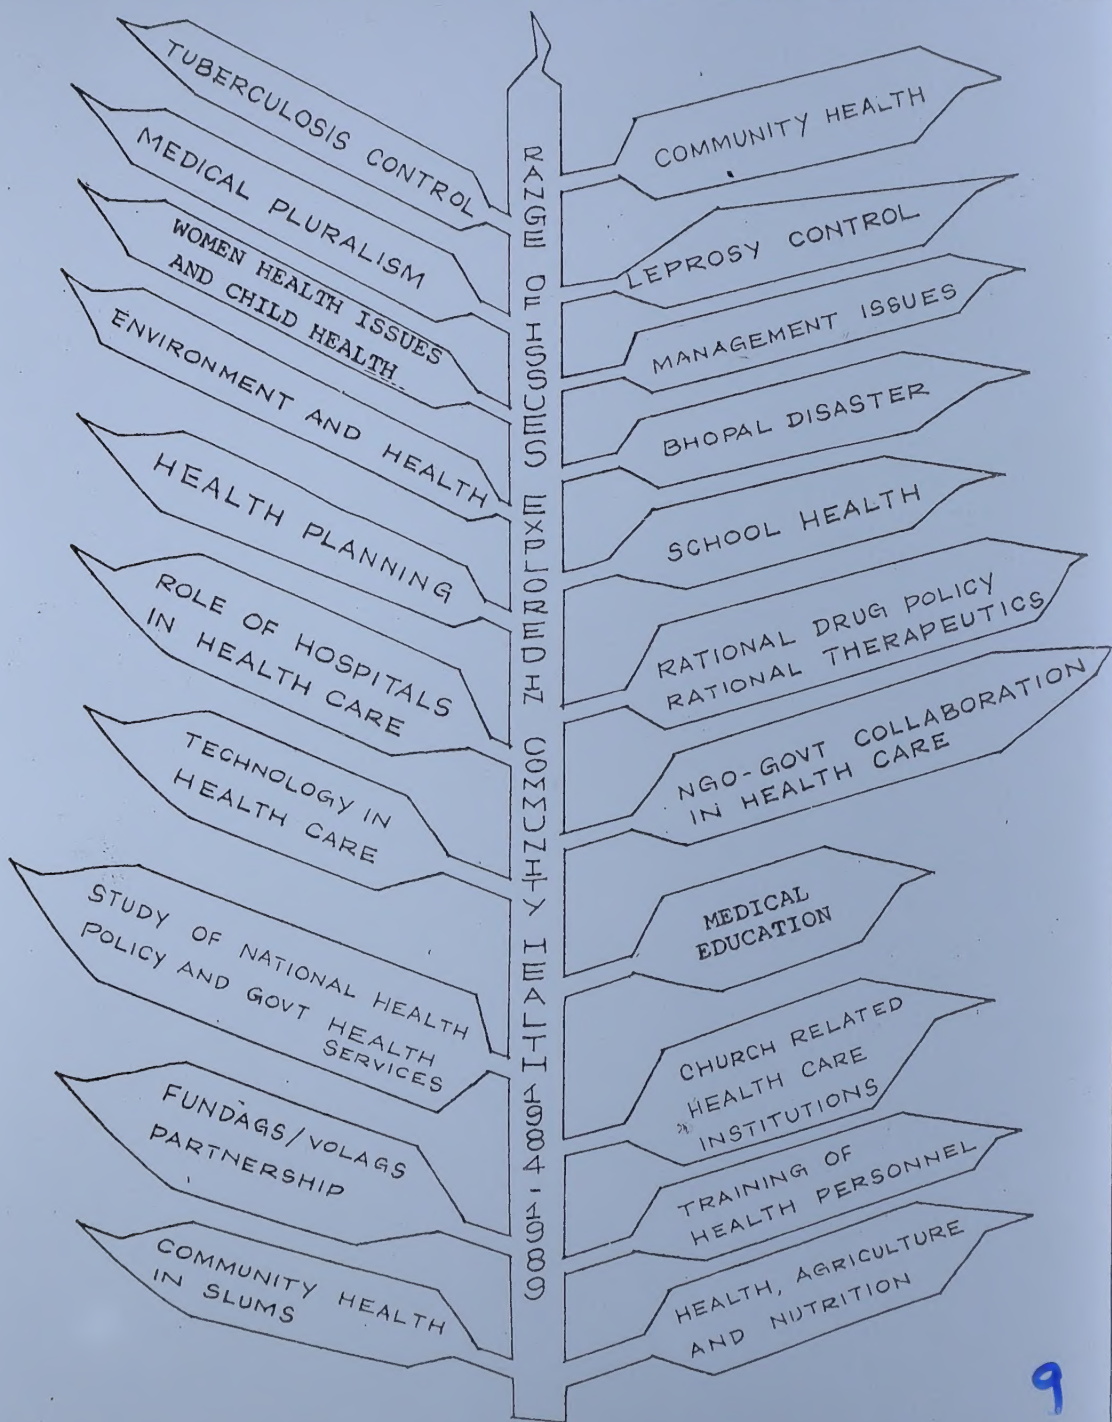 RANGE OF ISSUES EXPLORED IN COMMUNITY HEALTH 1984-1989
TUBERCULOSIS CONTROL
MEDICAL PLURALISM
WOMEN HEALTH ISSUES
AND CHILD HEALTH
ENVIRONMENT AND HEALTH
HEALTH PLANNING
ROLE OF HOSPITALS
IN HEALTH CARE
TECHNOLOGY IN
HEALTH CARE
STUDY OF NATIONAL HEALTH
POLICY AND GOVT HEALTH
SERVICES
FUNDAGS/VOLAGS
PARTNERSHIP
COMMUNITY HEALTH
IN SLUMS
COMMUNITY HEALTH
LEPROSY CONTROL
MANAGEMENT ISSUES
BHOPAL DISASTER
SCHOOL HEALTH
RATIONAL DRUG POLICY
RATIONAL THERAPEUTICS
NGO-GOVT COLLABORATION
IN HEALTH CARE
MEDICAL
EDUCATION
CHURCH RELATED
HEALTH CARE
INSTITUTIONS
TRAINING OF
HEALTH PERSONNEL
HEALTH, AGRICULTURE
AND NUTRITION
9